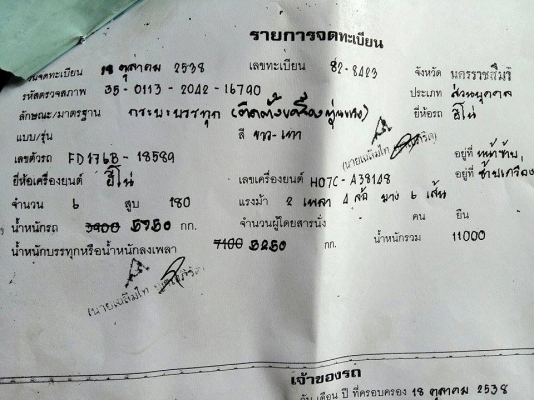 รายการจดทะเบียน
วันจดทะเบียน 18 ตุลาคม 2538 เลขทะเบียน 82-8423 จังหวัด นครราชสีมา
รหัสตรวจสภาพ 35-0113-2042-16790 ประเภท ส่วนบุคคล
ลักษณะ/มาตรฐาน กระบะบรรทุก (ติดตั้งเครื่องทุ่นแรง) ยี่ห้อรถ ฮีโน่
แบบ/รุ่น สี ขาว-เทา
เลขตัวรถ FD176B-18589 อยู่ที่ หน้าซ้าย
ยี่ห้อเครื่องยนต์ ฮีโน่ เลขเครื่องยนต์ H07C-A38148 อยู่ที่ ซ้ายเครื่อง
จำนวน 6 สูบ 180 แรงม้า 2 เพลา 4 ล้อ ยาง 6 เส้น
น้ำหนักรถ 3900 5750 กก. จำนวนผู้โดยสารนั่ง คน ยืน
น้ำหนักบรรทุกหรือน้ำหนักลงเพลา 7100 5250 กก. น้ำหนักรวม 11000
เจ้าของรถ
วัน เดือน ปี ที่ครอบครอง 18 ตุลาคม 2538